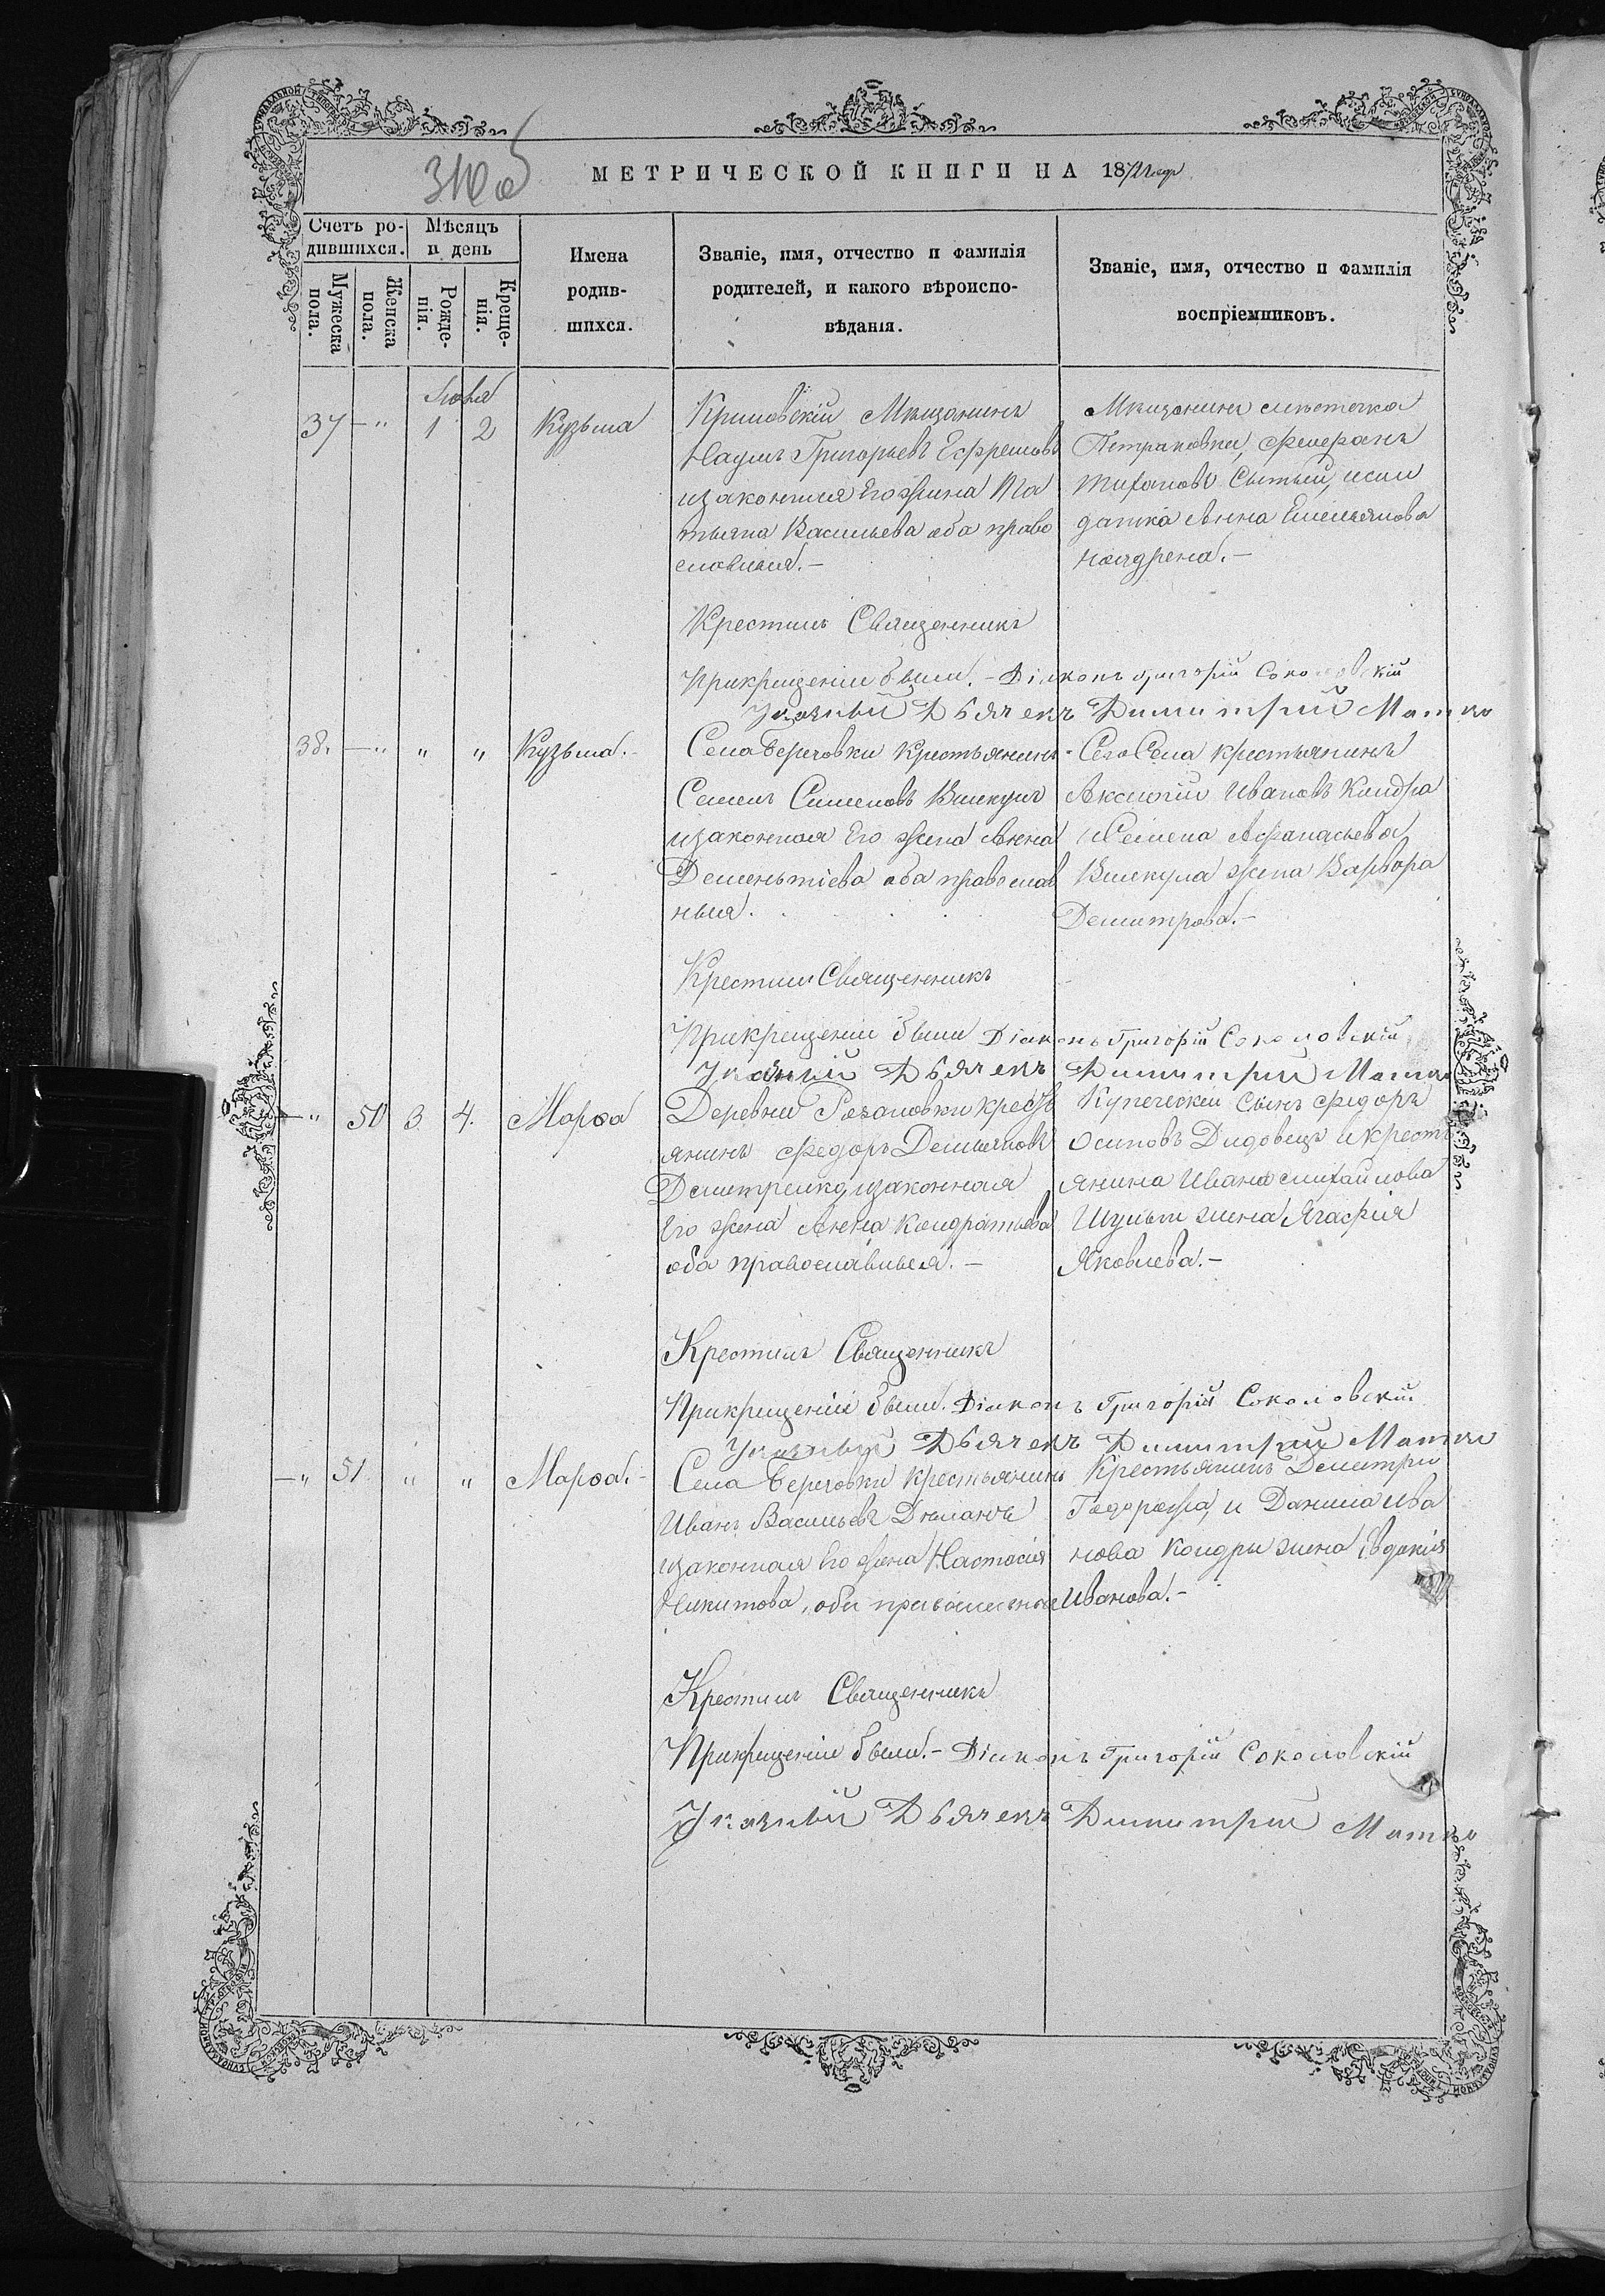 МЕТРИЧЕСКОЙ КНИГИ НА 18
Счетъ ро-
дившихся.
Мѣсяцъ
и день
Мужеска
пола.
Женска
пола.
Рожде-
нія.
Креще-
нія.
Имена
родив-
шихся.
Званіе, имя, отчество и фамилія
родителей, и какого вѣроиспо-
вѣданія.
Званіе, имя, отчество и фамилія
воспріемниковъ.
37 — " 1 2 Кузьма
Мѣщанинъ
Наумъ Григорьевъ Ефремовъ
изаконная Его жена Та
тьяна Васильева оба право
славныя. —
Мѣщанинъ мѣстечка
Петраковки,
Анна Емельянова
Крестилъ Священникъ
Прикрещеніи были. — Діаконъ Григорій Соколовскій
Указный Дьячекъ Димитрій Матко
38. — " " " Кузьма. —
Села Беречовки Крестьянинъ
Семенъ Семеновъ Вшекунъ
изаконная Его жена Анна
Дементіева оба православ
ныя.
Сего Села крестьянинъ
Ивановъ Кондра
и Семена Афанасьева
Вшекуна жена Варвора
Демитрова. —
Крестилъ Священникъ
Прикрещеніи были Діаконъ Григорій Соколовскій
Указный Дьячекъ Димитрій Матко
— " 50 3 4. Марѳа
Деревни Розановки крестЬ
янинъ Федоръ Демьяновъ
Демитренко, изаконная
Его жена Анна Кондратьева
оба православныя. —
Купеческій Сынъ Федоръ
Осиповъ Дидовецъ и крестЬ
янина Ивана Михайлова
жена Агафія
Яковлева. —
Крестилъ Священникъ
Прикрещеніи были. Діаконъ Григорій Соколовскій
Указный Дьячекъ Димитрій Матко
— " 51. " " Марѳа. —
Села Беречовки Крестьянинъ
Иванъ Васильевъ
изаконная Его жена Настасія
Никитова, оба православныя
Крестьянинъ Демитри
и Данила Ива
нова Кондри жена Евдокія
Иванова. —
Крестилъ Священникъ
Прикрещеніи были. — Діаконъ Григорій Соколовскій
Указный Дьячекъ Димитрій Матко